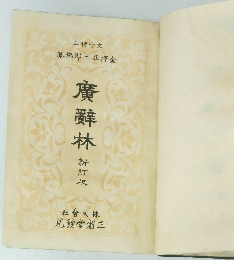 文學博士
金澤庄三郎編纂
廣辭林
新訂版
株式會社
三省堂發兌